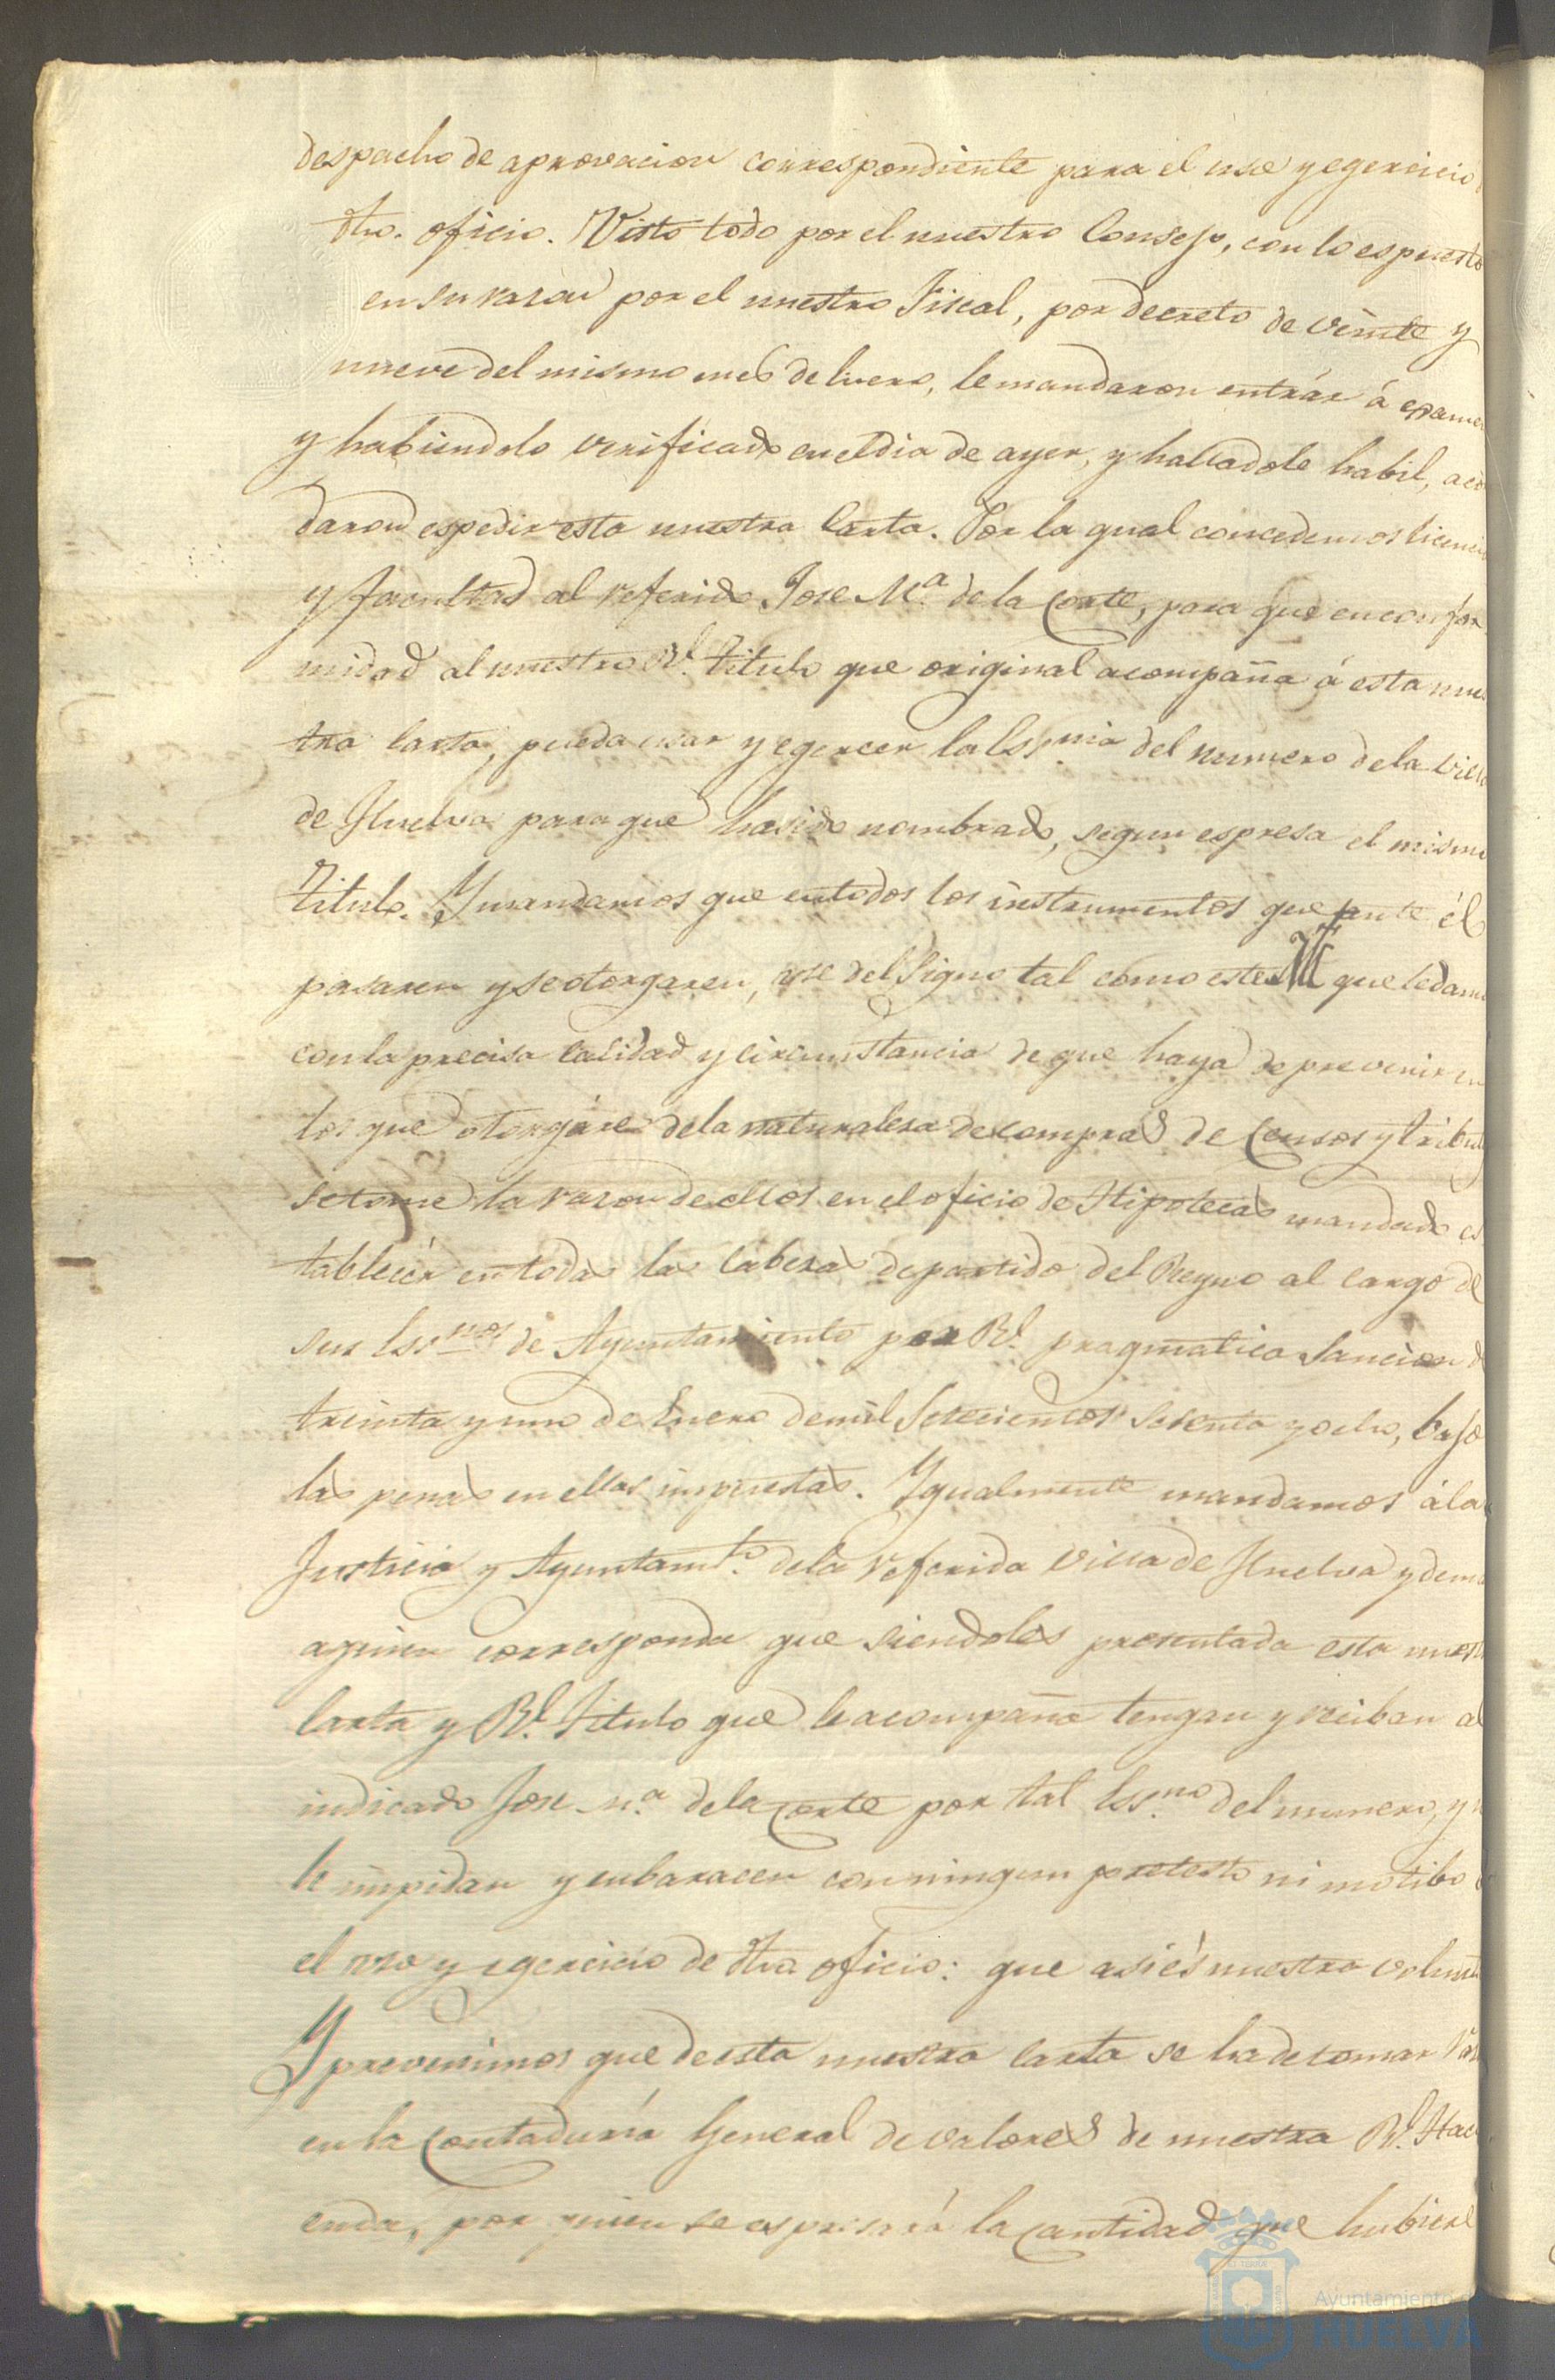 despacho de aprovacion correspondiente para el uso y egercicio
dho. oficio. Visto todo por el nuestro Consejo, con lo espuesto
en su razon por el nuestro Fiscal, por decreto de veinte y
nueve del mismo mes de Enero, le mandaron entrár á exame
y habiendolo verificado en el dia de ayer, y halladole habil, acor
daron espedir esta nuestra Carta. Por la qual concedemos licencia
y facultad al referido Jose M.ª de la Corte, para que en confor
midad al nuestro Rl. titulo que original acompaña á esta nues
tra Carta, pueda usar y egercer la Essnia del numero de la villa
de Huelva para que ha sido nombrado, segun espresa el mismo
titulo. Y mandamos que en todos los instrumentos que ante él
pasaren y se otorgaren, use del Signo tal como este que le damos
con la precisa calidad y circunstancia de que haya de prevenir en
los que otorgáre de la naturaleza de compras de Censos y tribut
se tome la razon de ellos en el oficio de Hipotecas mandado es
tablecér en todas las Cabezas de partido del Reyno al cargo de
sus Essnos de Ayuntamiento por Rl. pragmatica Sancion d
treinta y uno de Enero de mil Setecientos sesenta y ocho, bajo
las penas en ellas impuestas. Ygualmente mandamos á la
Justicia y Ayuntamto. de la referida villa de Huelva y dema
a quien corresponda que siendoles presentada esta nuest
Carta y Rl. titulo que le acompaña tengan y reciban al
indicado Jose M.ª de la Corte por tal Essno del numero, y n
le impidan y embaracen con ningun pretesto ni motibo
el uso y egercicio de dho oficio: que asi és nuestra volunt
Y prevenimos que de esta nuestra carta se ha de tomar raz
en la Contaduría General de valores de nuestra Rl. Haci
enda, por quien se espresará la cantidad que hubiere
Ayuntamiento
HUELVA